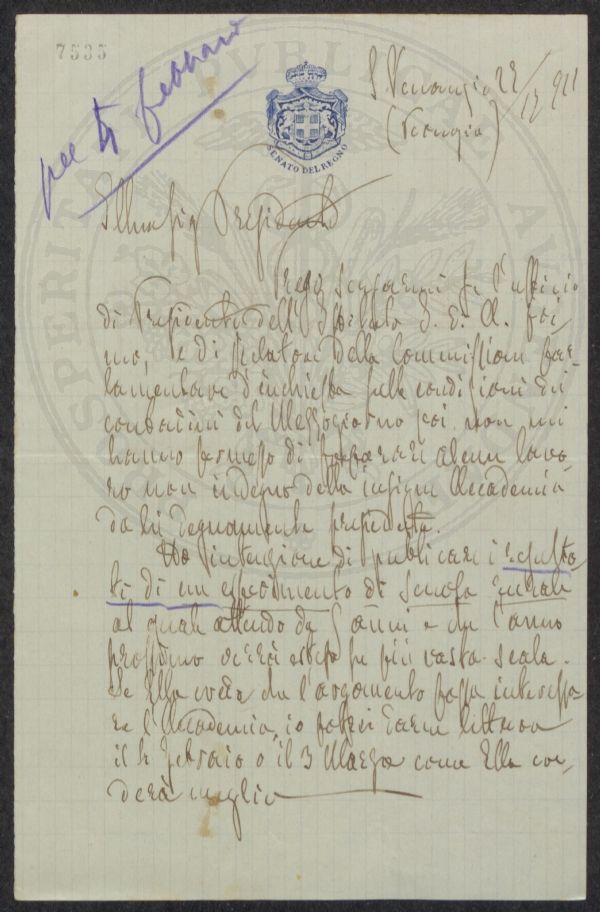 7535
per 4 febbraio
S. Venanzio 22/12 911
(Perugia)
SENATO DEL REGNO
Illmo Sig Presidente
l'ufficio
di Presidente dell'
mo, e di Relatore della Commissione Par-
lamentare d'inchiesta sulle condizioni dei
contadini del Mezzogiorno poi non mi
hanno permesso di preparare alcun lavo-
ro non indegno della insigne Accademia
da Lei degnamente presieduta.
Ho intenzione di publicare i resulta-
ti di un esperimento di Scuola Rurale
al quale attendo da 5 anni e che l'anno
prossimo verrà esteso su più vasta scala.
Se Ella crede che l'argomento possa interessa-
re l'Accademia, io potrei darne lettura
il 4 Febraio o il 3 Marzo come Ella cre-
derà meglio